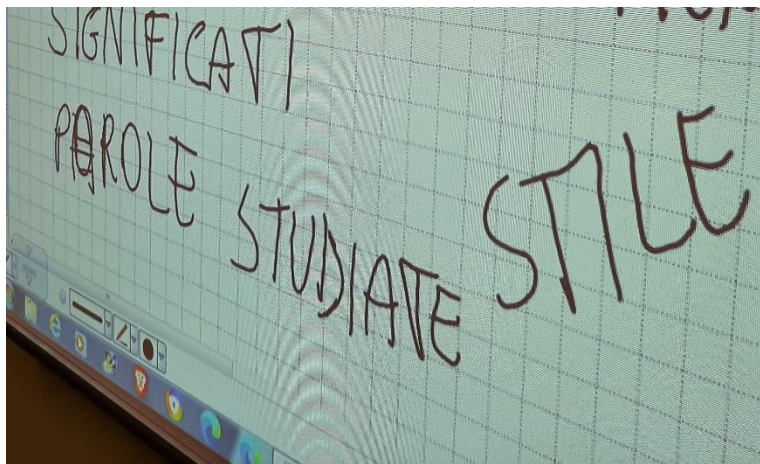 SIGNIFICATI
PAROLE STUDIATE
STILE